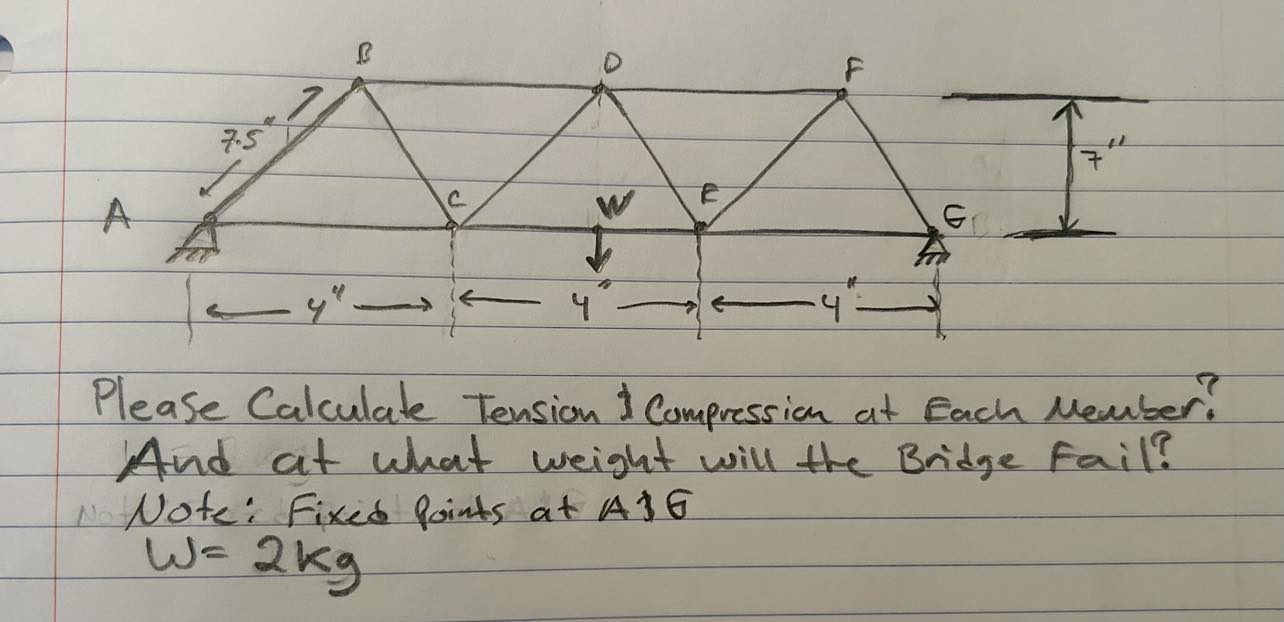 B D F
7.5"
7"
C E
W
A G
4" 4" 4"
Please Calculate Tension & Compression at Each Member?
And at what weight will the Bridge Fail?
Note: Fixed Points at A & G
W= 2kg